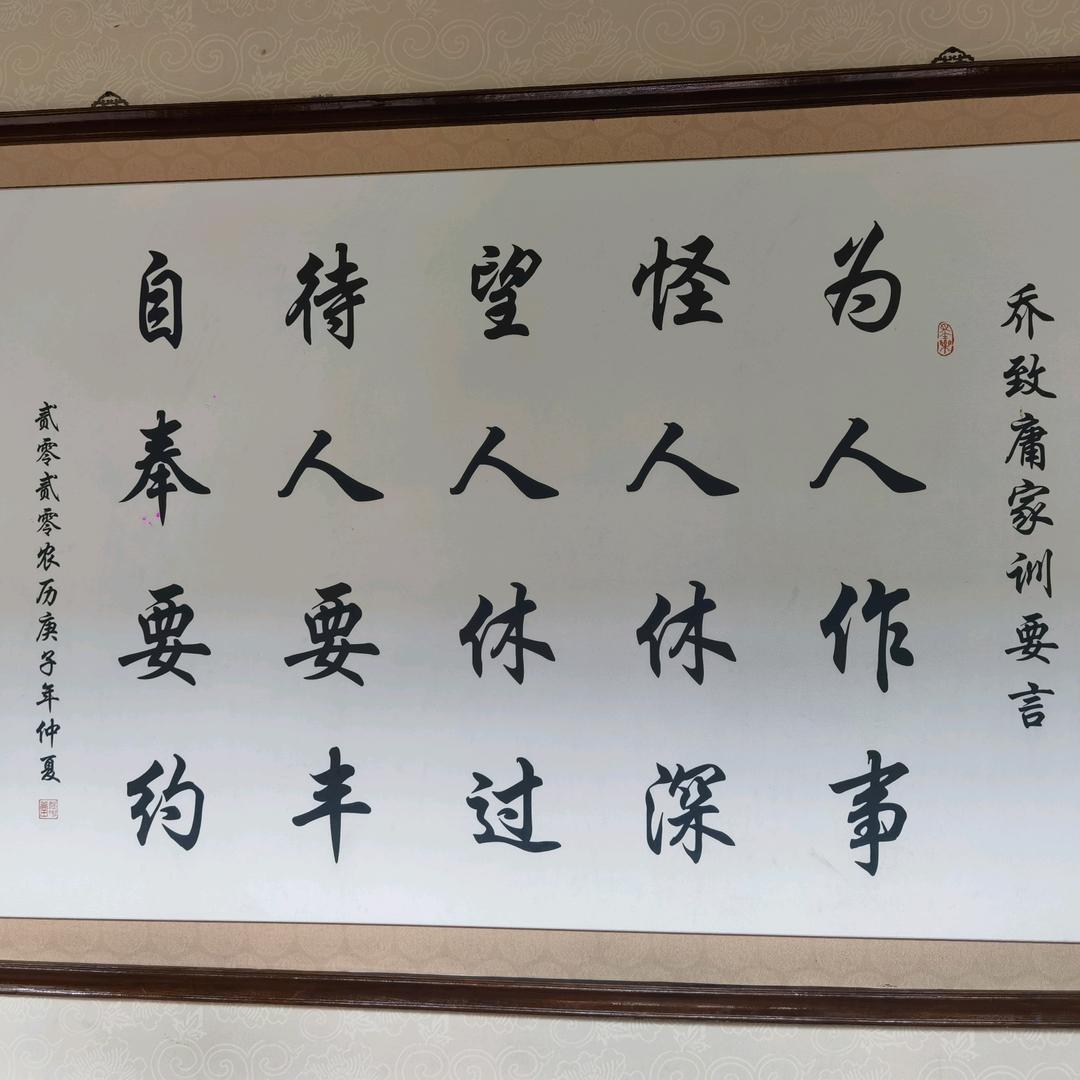 乔致庸家训要言
为人作事
怪人休深
望人休过
待人要丰
自奉要约
贰零贰零农历庚子年仲夏